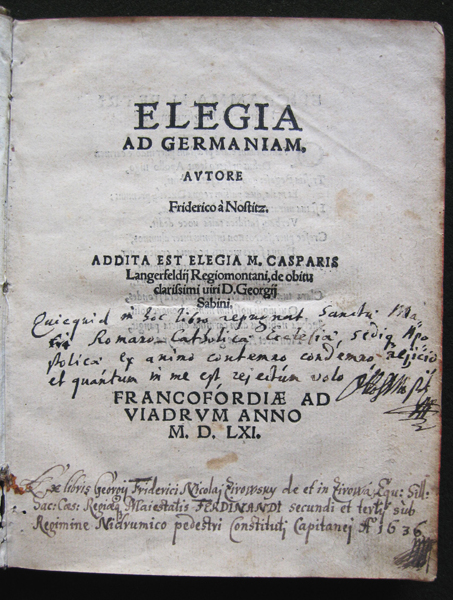 ELEGIA
AD GERMANIAM,
AVTORE
Friderico à Nostitz.
ADDITA EST ELEGIA M. CASPARIS
Langerfeldij Regiomontani, de obitu
clarissimi uiri D. Georgij
Sabini.
Quicquid in hoc libro repugnat Sanctæ Ma-
tri Romano Catholicæ Ecclesiæ, sediq Apo-
stolicæ ex animo contemno condemno reijcio
et quantum in me est rejectum volo
FRANCOFORDIÆ AD
VIADRVM ANNO
M. D. LXI.
Ex libris Georgij Friderici Nicolaj Zirowsky de et in Zirowa, Equ: Sil:
Sac: Cæs: Regiæq Maiestatis FERDINANDI secundi et tertij sub
Regimine Nidrumico pedestri Constituti Capitanej Aº 1636